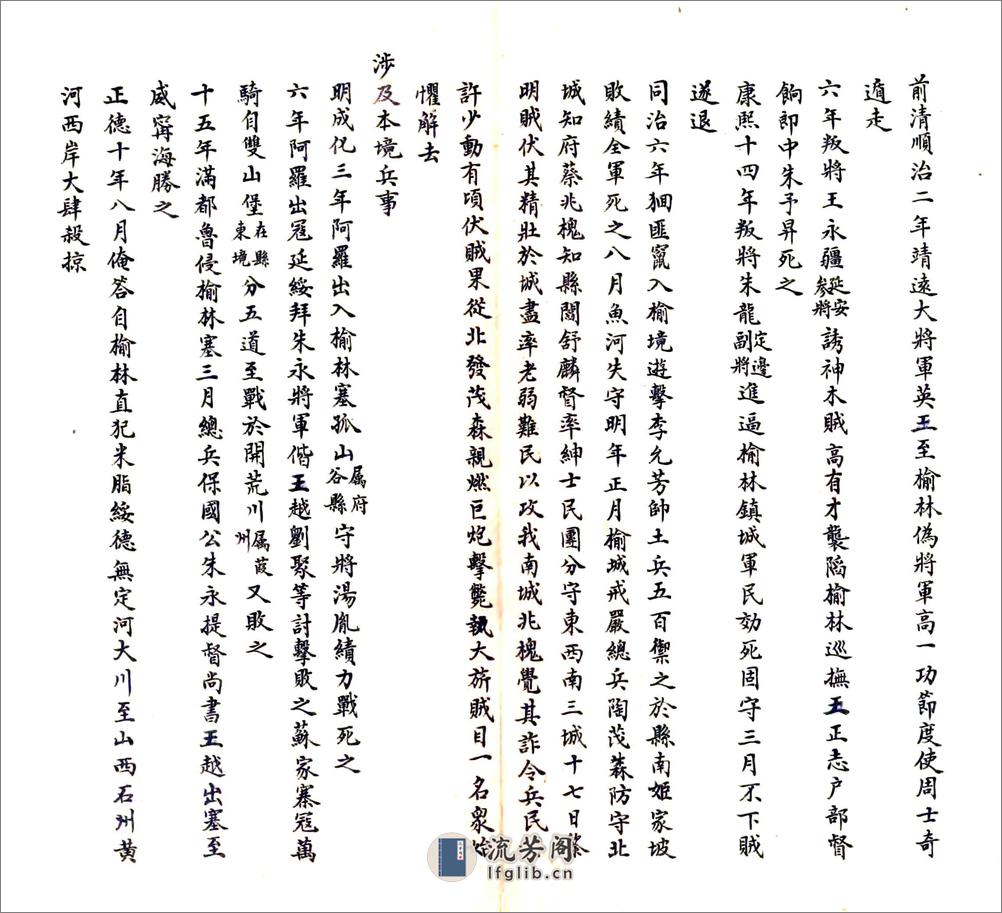 前清順治二年靖遠大將軍英王至榆林偽將軍高一功節度使周士奇
遁走
六年叛將王永疆延安參將誘神木賊高有才襲陷榆林巡撫王正志户部督
餉郎中朱予昇死之
康熙十四年叛將朱龍定邊副將進逼榆林鎮城軍民効死固守三月不下賊
遂退
同治六年㺄匪竄入榆境遊擊李允芳帥土兵五百禦之於縣南姬家坡
敗績全軍死之八月魚河失守明年正月榆城戒嚴總兵陶茂森防守北
城知府蔡兆槐知縣閻舒麟督率紳士民團分守東西南三城十七日黎
明賊伏其精壯於城盡率老弱難民以攻我南城兆槐覺其詐令兵民
許少動有頃伏賊果從北發茂森親燃巨炮擊斃執大旂賊目一名衆始
懼解去
涉及本境兵事
明成化三年阿羅出入榆林塞孤山属府谷縣守將湯胤績力戰死之
六年阿羅出冦延綏拜朱永將軍偕王越劉聚等討擊敗之蘇家寨冦萬
騎自雙山堡在縣東境分五道至戰於開荒川属葭州又敗之
十五年滿都魯侵榆林塞三月總兵保國公朱永提督尚書王越出塞至
威寧海勝之
正德十年八月俺答自榆林直犯米脂綏德無定河大川至山西石州黄
河西岸大肆殺掠
流芳阁
lfglib.cn